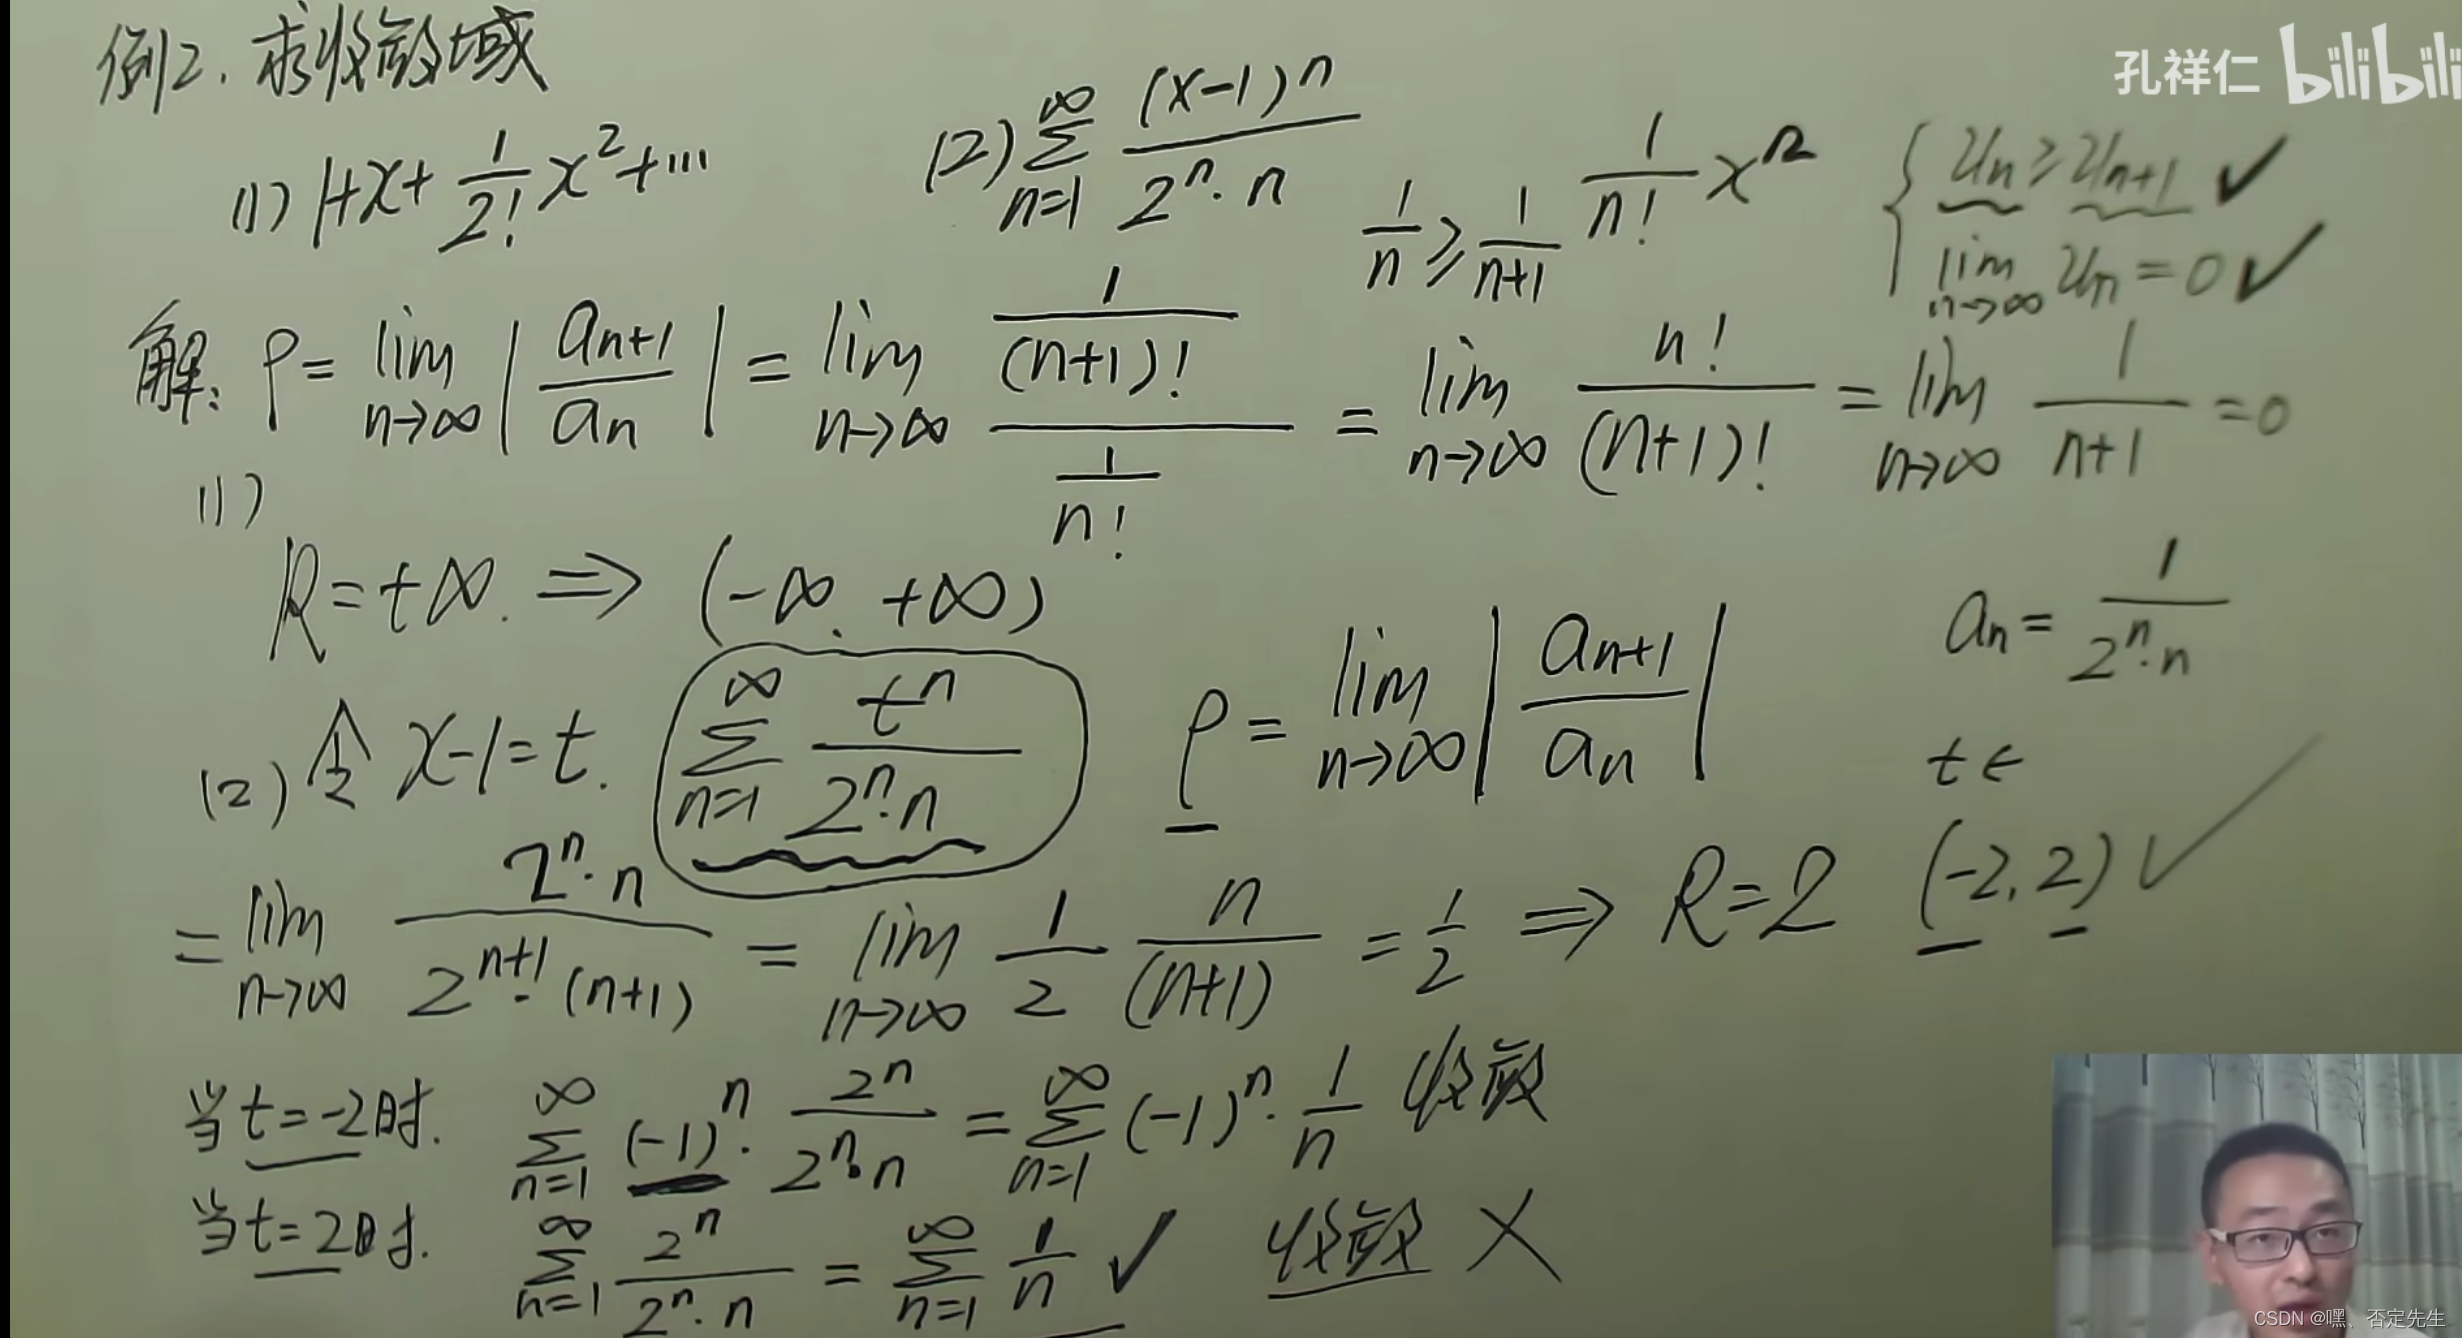 例2. 求收敛域
孔祥仁 bilibili
(1) 1+x+\frac{1}{2!}x^2+…
(2) \sum_{n=1}^{∞} \frac{(x-1)^n}{2^n·n}
\frac{1}{n} ≥ \frac{1}{n+1}
\frac{1}{n!}x^n
{ u_n ≥ u_{n+1} ✓
\lim_{n→∞} u_n = 0 ✓
解: ρ = \lim_{n→∞} |\frac{a_{n+1}}{a_n}| = \lim_{n→∞} \frac{\frac{1}{(n+1)!}}{\frac{1}{n!}} = \lim_{n→∞} \frac{n!}{(n+1)!} = \lim_{n→∞} \frac{1}{n+1} = 0
(1)
R=+∞. ⇒ (-∞, +∞)
(2) 令 x-1=t. \sum_{n=1}^{∞} \frac{t^n}{2^n·n} ρ = \lim_{n→∞} |\frac{a_{n+1}}{a_n}|
a_n = \frac{1}{2^n·n}
t∈
(-2, 2) ✓
= \lim_{n→∞} \frac{2^n·n}{2^{n+1}·(n+1)} = \lim_{n→∞} \frac{1}{2} \frac{n}{(n+1)} = \frac{1}{2} ⇒ R=2
当t=-2时. \sum_{n=1}^{∞} (-1)^n· \frac{2^n}{2^n·n} = \sum_{n=1}^{∞} (-1)^n· \frac{1}{n} 收敛
当t=2时. \sum_{n=1}^{∞} \frac{2^n}{2^n·n} = \sum_{n=1}^{∞} \frac{1}{n} ✓ 收敛 ×
CSDN @嘿、否定先生